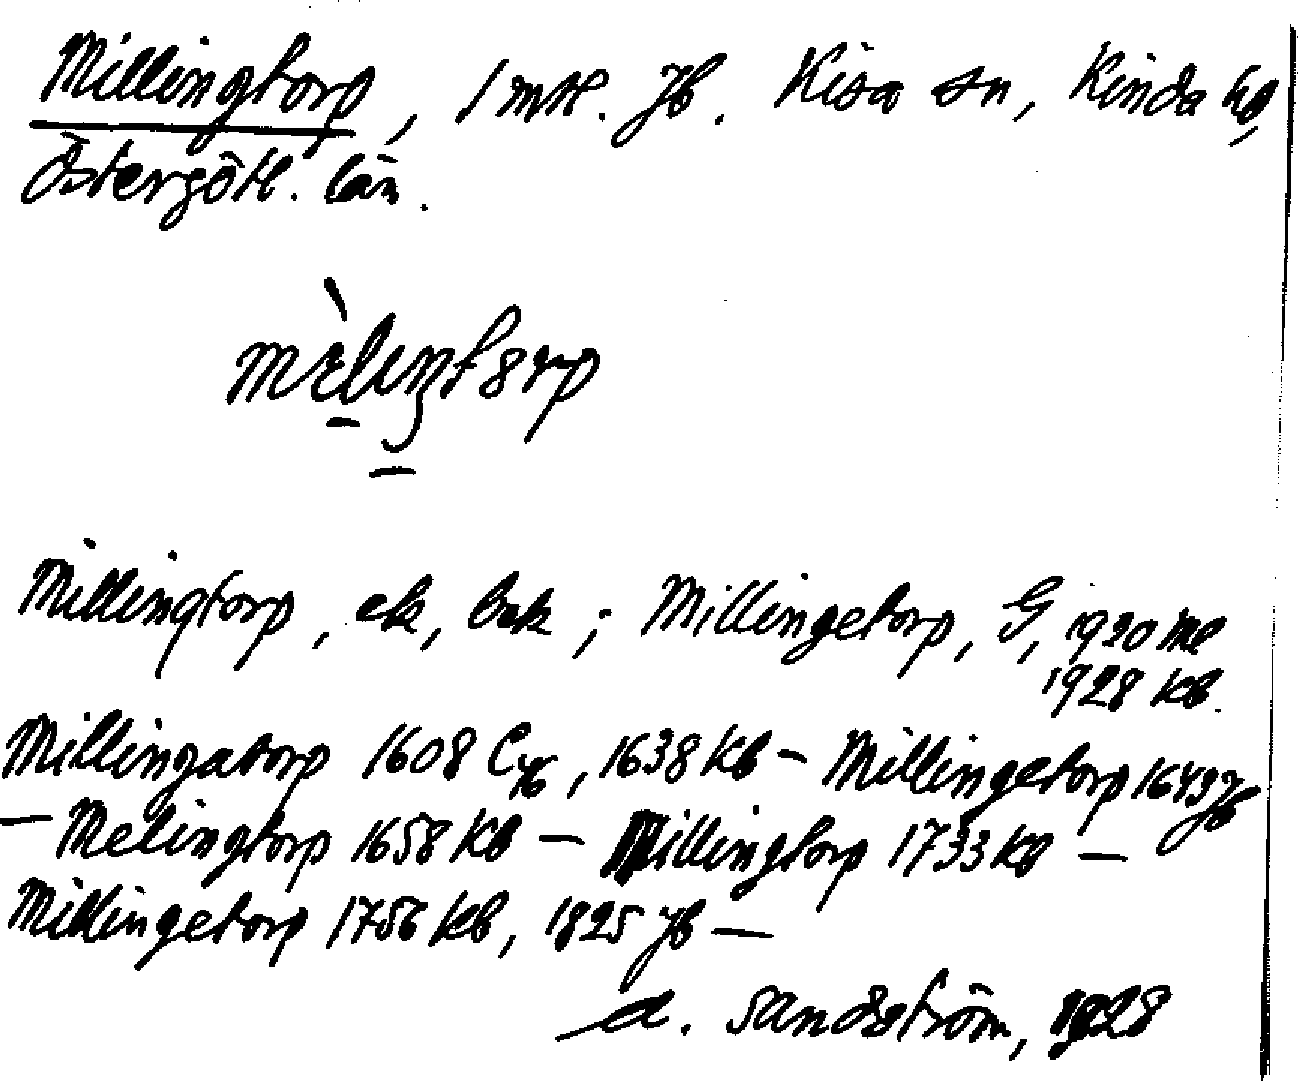 Millingtorp, 1 mtl. Jb. Kisa sn, Kinda hd,
Östergötl. län.
Millingtorp, ek, bok; Millingetorp, G, 1930 Ml
1928 Kb.
Millingatorp 1608 Cyb, 1638 Kb – Millingetorp 1643 Jb
– Melingtorp 1658 Kb – Millingtorp 1733 Kb –
Millingetorp 1756 Kb, 1825 Jb –
A. Sandström, 1928